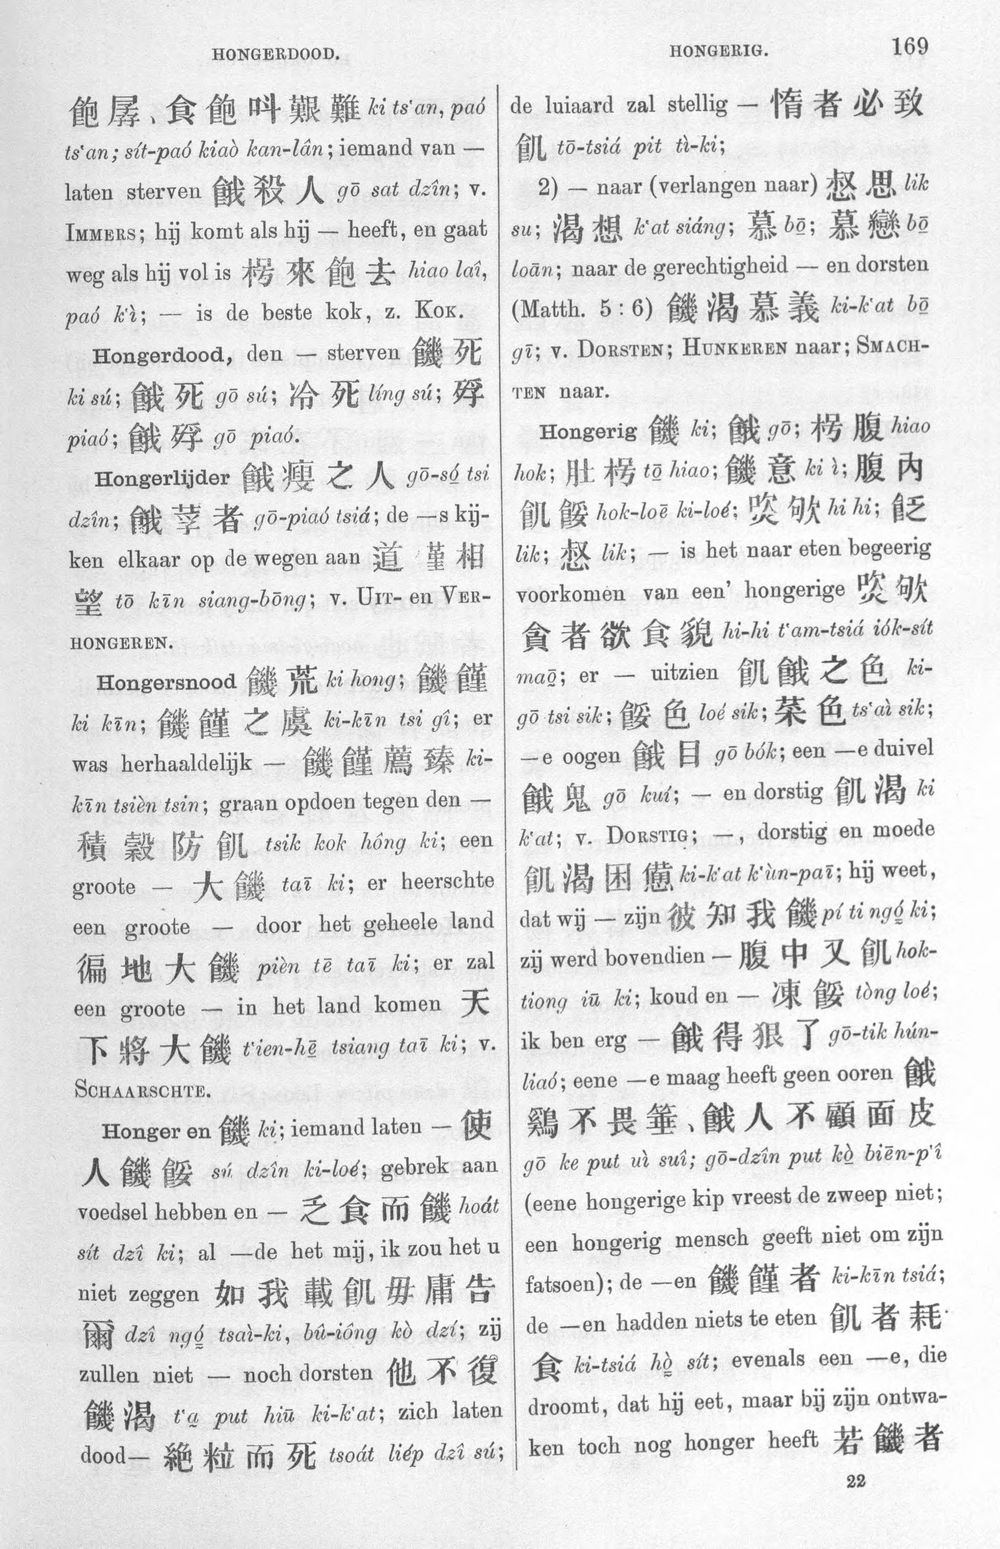 HONGERDOOD.
HONGERIG.
169
飽孱、食飽呌艱難 ki ts‘an, paó
ts‘an; sít-paó kiaò kan-lân; iemand van —
laten sterven 餓殺人 gō sat dzîn; v.
IMMERS; hij komt als hij — heeft, en gaat
weg als hij vol is 枵來飽去 hiao laî,
paó k‘ì; — is de beste kok, z. KOK.
Hongerdood, den — sterven 饑死
ki sú; 餓死 gō sú; 冷死 líng sú; 殍
piaó; 餓殍 gō piaó.
Hongerlijder 餓瘦之人 gō-só̤ tsi
dzîn; 餓莩者 gō-piaó tsiá; de —s kij-
ken elkaar op de wegen aan 道菫相
望 tō kīn siang-bōng; v. UIT- en VER-
HONGEREN.
Hongersnood 饑荒 ki hong; 饑饉
ki kīn; 饑饉之虞 ki-kīn tsi gî; er
was herhaaldelijk — 饑饉薦臻 ki-
kīn tsièn tsin; graan opdoen tegen den —
積穀防飢 tsik kok hông ki; een
groote — 大饑 taī ki; er heerschte
een groote — door het geheele land
徧地大饑 pièn tē taī ki; er zal
een groote — in het land komen 天
下將大饑 t‘ien-hē̤ tsiang taī ki; v.
SCHAARSCHTE.
Hongeren 饑 ki; iemand laten — 使
人饑餒 sú dzîn ki-loé; gebrek aan
voedsel hebben en — 乏食而饑 hoát
sít dzî ki; al —de het mij, ik zou het u
niet zeggen 如我載飢毋庸告
爾 dzî ngó̤ tsaì-ki, bû-iông kò dzí; zij
zullen niet — noch dorsten 他不復
饑渴 t‘a̤ put hiū ki-k‘at; zich laten
dood— 絶粒而死 tsoát liép dzî sú;
de luiaard zal stellig — 惰者必致
飢 tō-tsiá pit tì-ki;
2) — naar (verlangen naar) 惄思 lik
su; 渴想 k‘at siáng; 慕 bō̤; 慕戀 bō̤
loān; naar de gerechtigheid — en dorsten
(Matth. 5 : 6) 饑渴慕義 ki-k‘at bō̤
gī; v. DORSTEN; HUNKEREN naar; SMACH-
TEN naar.
Hongerig 饑 ki; 餓 gō; 枵腹 hiao
hok; 肚枵 tō̤ hiao; 饑意 ki ì; 腹內
飢餒 hok-loē ki-loé; 唉欨 hi hi; 䬥
lik; 惄 lik; — is het naar eten begeerig
voorkomen van een’ hongerige 唉欨
貪者欲食貌 hi-hi t‘am-tsiá iók-sít
maō̤; er — uitzien 飢餓之色 ki-
gō tsi sik; 餒色 loé sik; 菜色 ts‘aì sik;
—e oogen 餓目 gō bók; een —e duivel
餓鬼 gō kuí; — en dorstig 飢渴 ki
k‘at; v. DORSTIG; —, dorstig en moede
飢渴困憊 ki-k‘at k‘ùn-paī; hij weet,
dat wij — zijn 彼知我饑 pí ti ngó̤ ki;
zij werd bovendien — 腹中又飢 hok-
tiong iū ki; koud en — 凍餒 tòng loé;
ik ben erg — 餓得狠了 gō-tik hún-
liaó; eene —e maag heeft geen ooren 餓
鷄不畏箠、餓人不顧面皮
gō ke put uì suî; gō-dzîn put kò̤ biēn-p‘î
(eene hongerige kip vreest de zweep niet;
een hongerig mensch geeft niet om zijn
fatsoen); de —en 饑饉者 ki-kīn tsiá;
de —en hadden niets te eten 飢者耗
食 ki-tsiá hò̤ sít; evenals een —e, die
droomt, dat hij eet, maar bij zijn ontwa-
ken toch nog honger heeft 若饑者
22